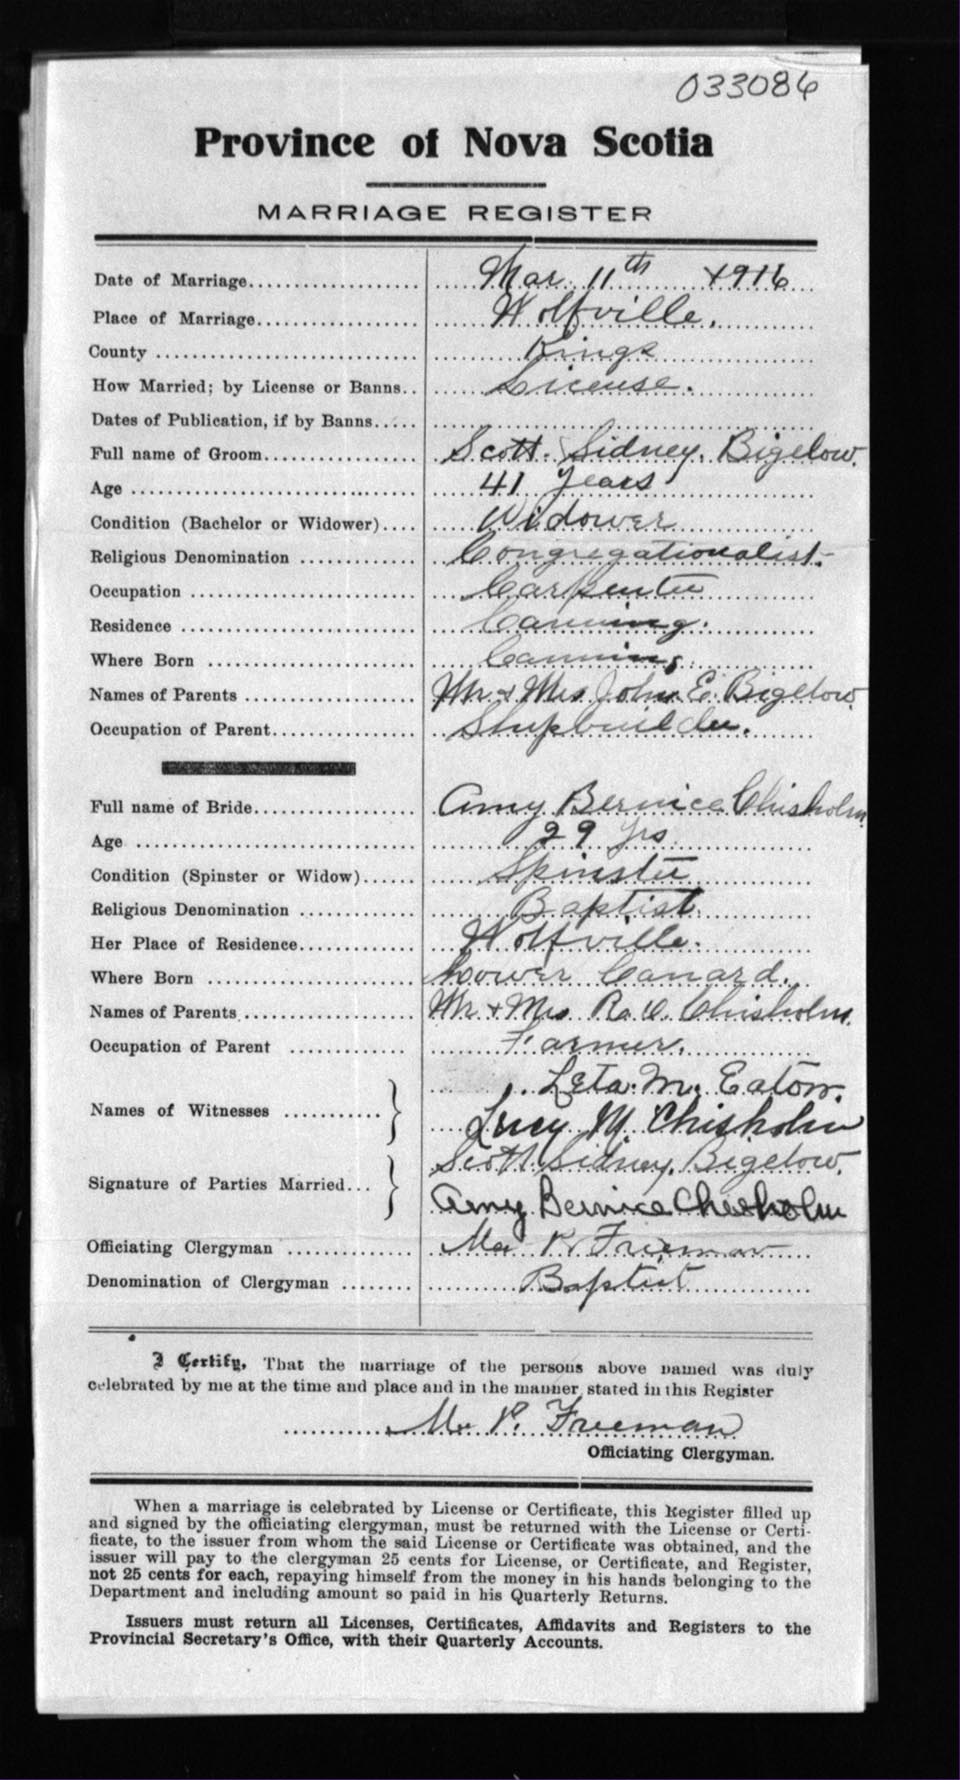 033086
Province of Nova Scotia
MARRIAGE REGISTER
Date of Marriage Mar 11th 1916
Place of Marriage Wolfville.
County Kings
How Married; by License or Banns License.
Dates of Publication, if by Banns
Full name of Groom Scott. Sidney. Bigelow.
Age 41 years
Condition (Bachelor or Widower) Widower
Religious Denomination Congregationalist.
Occupation Carpenter
Residence Canning.
Where Born Canning
Names of Parents Mr & Mrs John E. Bigelow
Occupation of Parent Shipbuilder.
Full name of Bride Amy Bernice Chisholm
Age 29 yrs
Condition (Spinster or Widow) Spinster
Religious Denomination Baptist
Her Place of Residence Wolfville.
Where Born Lower Canard.
Names of Parents Mr & Mrs R. Chisholm
Occupation of Parent Farmer.
Leta. M. Eaton.
Names of Witnesses
Lucy M. Chisholm
Scott Sidney. Bigelow.
Signature of Parties Married
Amy Bernice Chisholm
Officiating Clergyman P. Freeman
Denomination of Clergyman Baptist
I Certify, That the marriage of the persons above named was duly
celebrated by me at the time and place and in the manner stated in this Register
P. Freeman
Officiating Clergyman.
When a marriage is celebrated by License or Certificate, this Register filled up
and signed by the officiating clergyman, must be returned with the License or Certi-
ficate, to the issuer from whom the said License or Certificate was obtained, and the
issuer will pay to the clergyman 25 cents for License, or Certificate, and Register,
not 25 cents for each, repaying himself from the money in his hands belonging to the
Department and including amount so paid in his Quarterly Returns.
Issuers must return all Licenses, Certificates, Affidavits and Registers to the
Provincial Secretary's Office, with their Quarterly Accounts.